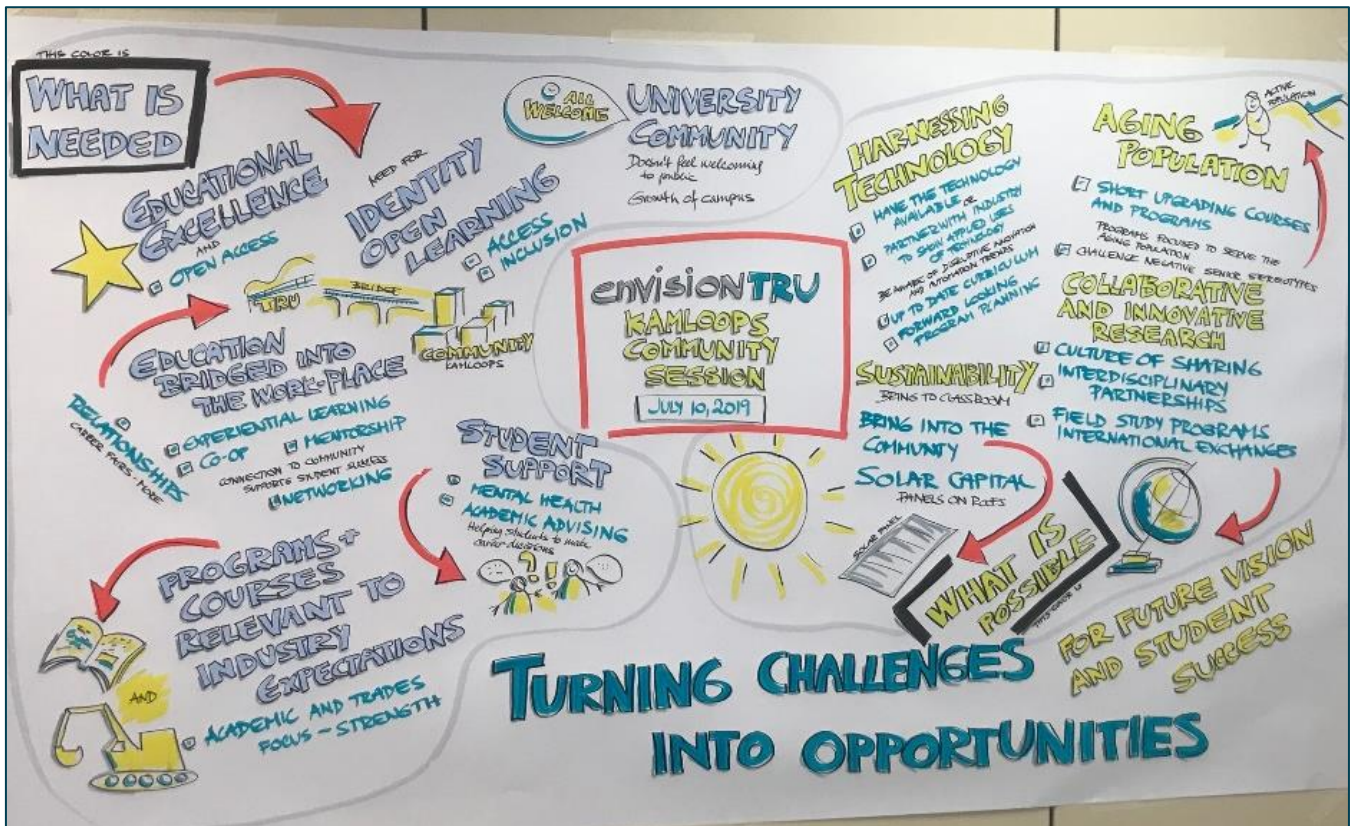 THIS COLOR IS
WHAT IS
NEEDED
EDUCATIONAL
EXCELLENCE
AND
OPEN ACCESS
NEED FOR
IDENTITY
OPEN
LEARNING
ACCESS
INCLUSION
ALL
WELCOME
UNIVERSITY
COMMUNITY
Doesn't feel welcoming
to public
Growth of campus
TRU
BRIDGE
COMMUNITY
KAMLOOPS
EDUCATION
BRIDGED INTO
THE WORK-PLACE
EXPERIENTIAL LEARNING
CO-OP
MENTORSHIP
CONNECTION TO COMMUNITY
SUPPORTS STUDENT SUCCESS
NETWORKING
RELATIONSHIPS
CAREER FAIRS - MORE
STUDENT
SUPPORT
MENTAL HEALTH
ACADEMIC ADVISING
Helping students to make
career decisions
??
PROGRAMS +
COURSES
RELEVANT TO
INDUSTRY
EXPECTATIONS
AND
ACADEMIC AND TRADES
FOCUS - STRENGTH
envisionTRU
KAMLOOPS
COMMUNITY
SESSION
JULY 10, 2019
HARNESSING
TECHNOLOGY
HAVE THE TECHNOLOGY
AVAILABLE OR
PARTNER WITH INDUSTRY
TO SHOW APPLIED USES
OF TECHNOLOGY
BE AWARE OF DISRUPTIVE INNOVATION
AND AUTOMATION TRENDS
UP TO DATE CURRICULUM
FORWARD LOOKING
PROGRAM PLANNING
SUSTAINABILITY
BRING TO CLASSROOM
BRING INTO THE
COMMUNTY
SOLAR CAPITAL
PANELS ON ROOFS
SOLAR PANEL
AGING
POPULATION
ACTIVE
POPULATION
SHORT UPGRADING COURSES
AND PROGRAMS
PROGRAMS FOCUSED TO SERVE THE
AGING POPULATION
CHALLENGE NEGATIVE SENIOR STEREOTYPES
COLLABORATIVE
AND INNOVATIVE
RESEARCH
CULTURE OF SHARING
INTERDISCIPLINARY
PARTNERSHIPS
FIELD STUDY PROGRAMS
INTERNATIONAL EXCHANGES
WHAT IS
POSSIBLE
THIS COLOR IS
FOR FUTURE VISION
AND STUDENT
SUCCESS
TURNING CHALLENGES
INTO OPPORTUNITIES